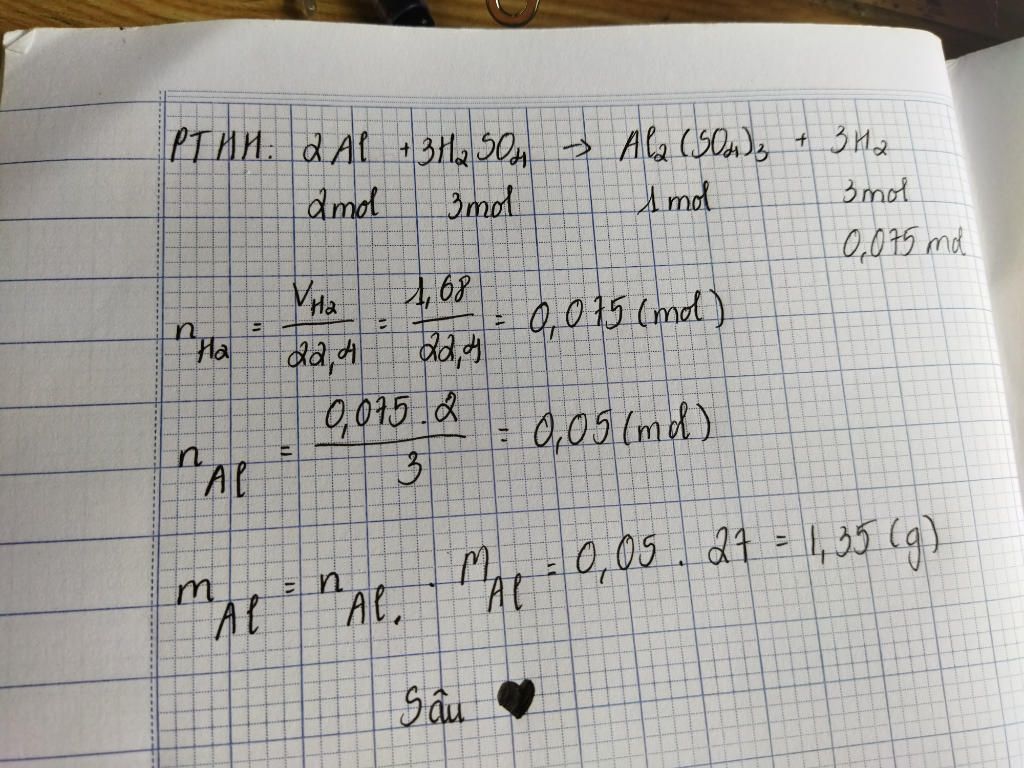 PTHH: 2Al + 3H₂SO₄ → Al₂(SO₄)₃ + 3H₂
2mol 3mol 1mol 3mol
0,075 mol
n_H₂ = V_H₂/22,4 = 1,68/22,4 = 0,075 (mol)
n_Al = 0,075 . 2/3 = 0,05 (mol)
m_Al = n_Al. . M_Al = 0,05 . 27 = 1,35 (g)
Sâu ♥